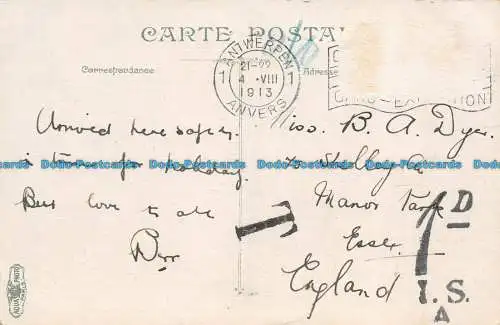 CARTE POSTALE
Correspondance
Adresse
ANTWERPEN
1 21-22 1
4 -VIII
1913
ANVERS
GAND-EXPOSITION
Arrived here safely
in time for holiday.
Best love to all
iss. B. A. Dyer.
Manor Park
Essex.
England
T
1D
I.S.
A
Postcards Postcards Postcards Postcards Postcards Postcards